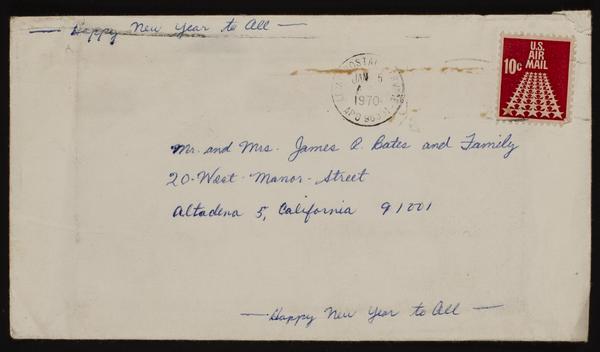 — Happy New Year to All —
U.S.
AIR
MAIL
10c
POSTAL
JAN 5
1970
APO
Mr. and Mrs. James R. Bates and Family
20-West-Manor-Street
Altadena 5, California 91001
— Happy New Year to All —